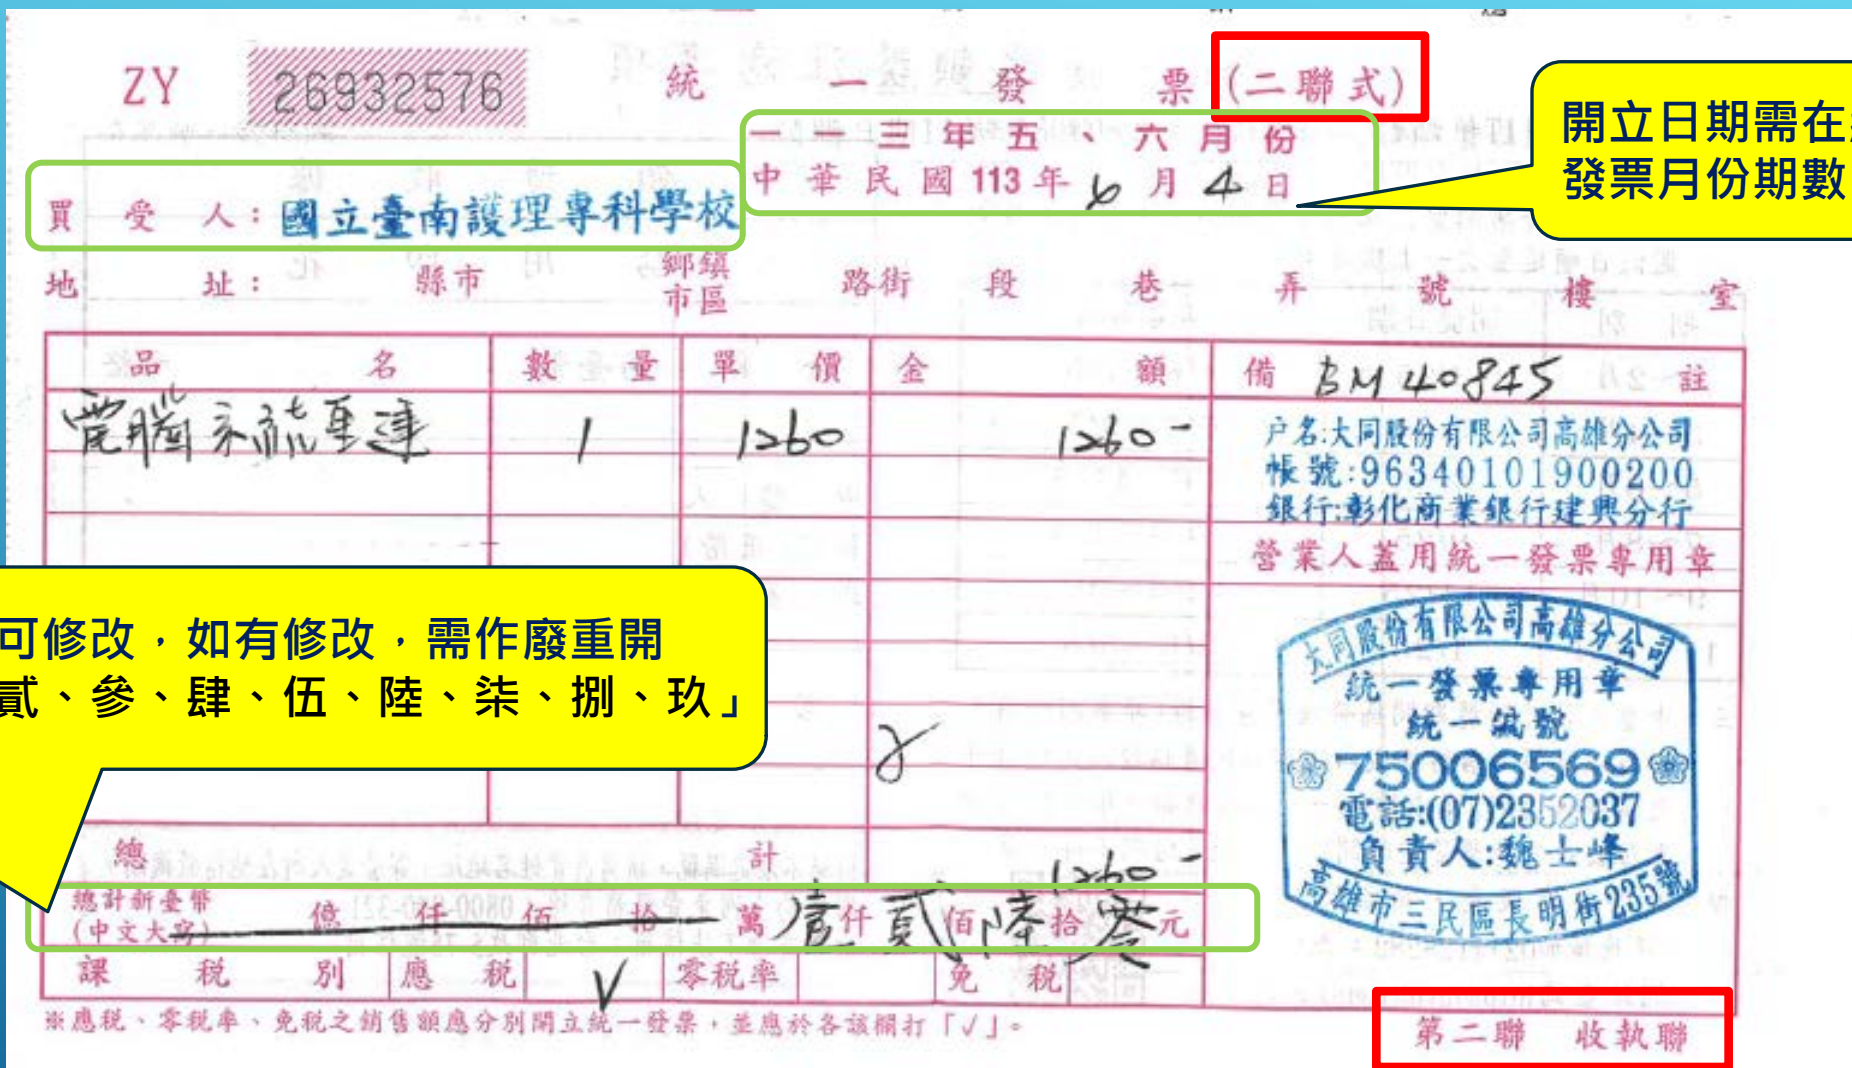 ZY 26932576 統一發票(二聯式)
一一三年五、六月份
中華民國 113 年 6 月 4 日
開立日期需在
發票月份期數
買受人：國立臺南護理專科學校
地址： 縣市 鄉鎮市區 路街 段 巷 弄 號 樓 室
品名 數量 單價 金額 備註 BM40845
電腦系統重建 1 1260 1260-
戶名:大同股份有限公司高雄分公司
帳號:96340101900200
銀行:彰化商業銀行建興分行
營業人蓋用統一發票專用章
可修改，如有修改，需作廢重開
貳、參、肆、伍、陸、柒、捌、玖」
大同股份有限公司高雄分公司
統一發票專用章
統一編號
75006569
電話:(07)2352037
負責人:魏士峰
高雄市三民區長明街235號
總計 1260-
總計新臺幣(中文大寫) 億 仟 佰 拾 萬 壹仟 貳佰 陸拾 零元
課稅別 應稅 V 零稅率 免稅
※應稅、零稅率、免稅之銷售額應分別開立統一發票，並應於各該欄打「√」。
第二聯 收執聯